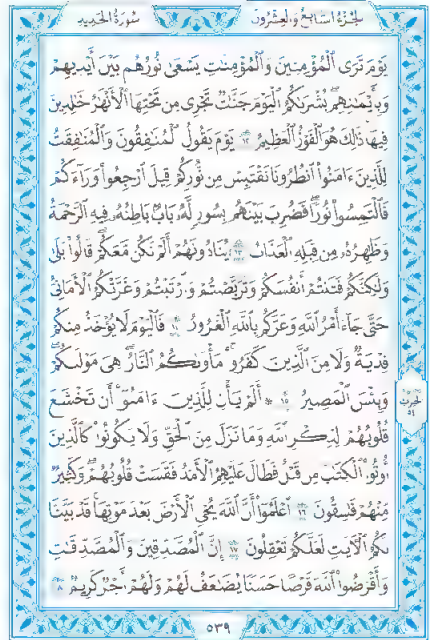 الجزء السابع والعشرون
سورة الحديد
يوم ترى المؤمنين والمؤمنات يسعى نورهم بين أيديهم
وبأيمانهم بشراكم اليوم جنات تجري من تحتها الأنهار خالدين
فيها ذلك هو الفوز العظيم ١٢ يوم يقول المنافقون والمنافقات
للذين ءامنوا انظرونا نقتبس من نوركم قيل ارجعوا وراءكم
فالتمسوا نورا فضرب بينهم بسور له باب باطنه فيه الرحمة
وظاهره من قبله العذاب ١٣ ينادونهم ألم نكن معكم قالوا بلى
ولكنكم فتنتم أنفسكم وتربصتم وارتبتم وغرتكم الأماني
حتى جاء أمر الله وغركم بالله الغرور ١٤ فاليوم لا يؤخذ منكم
فدية ولا من الذين كفروا مأواكم النار هي مولاكم
وبئس المصير ١٥ * ألم يأن للذين ءامنوا أن تخشع
قلوبهم لذكر الله وما نزل من الحق ولا يكونوا كالذين
أوتوا الكتاب من قبل فطال عليهم الأمد فقست قلوبهم وكثير
منهم فاسقون ١٦ اعلموا أن الله يحي الأرض بعد موتها قد بينا
لكم الآيات لعلكم تعقلون ١٧ إن المصدقين والمصدقات
وأقرضوا الله قرضا حسنا يضاعف لهم ولهم أجر كريم ١٨
الحزب
٥٤
٥٣٩